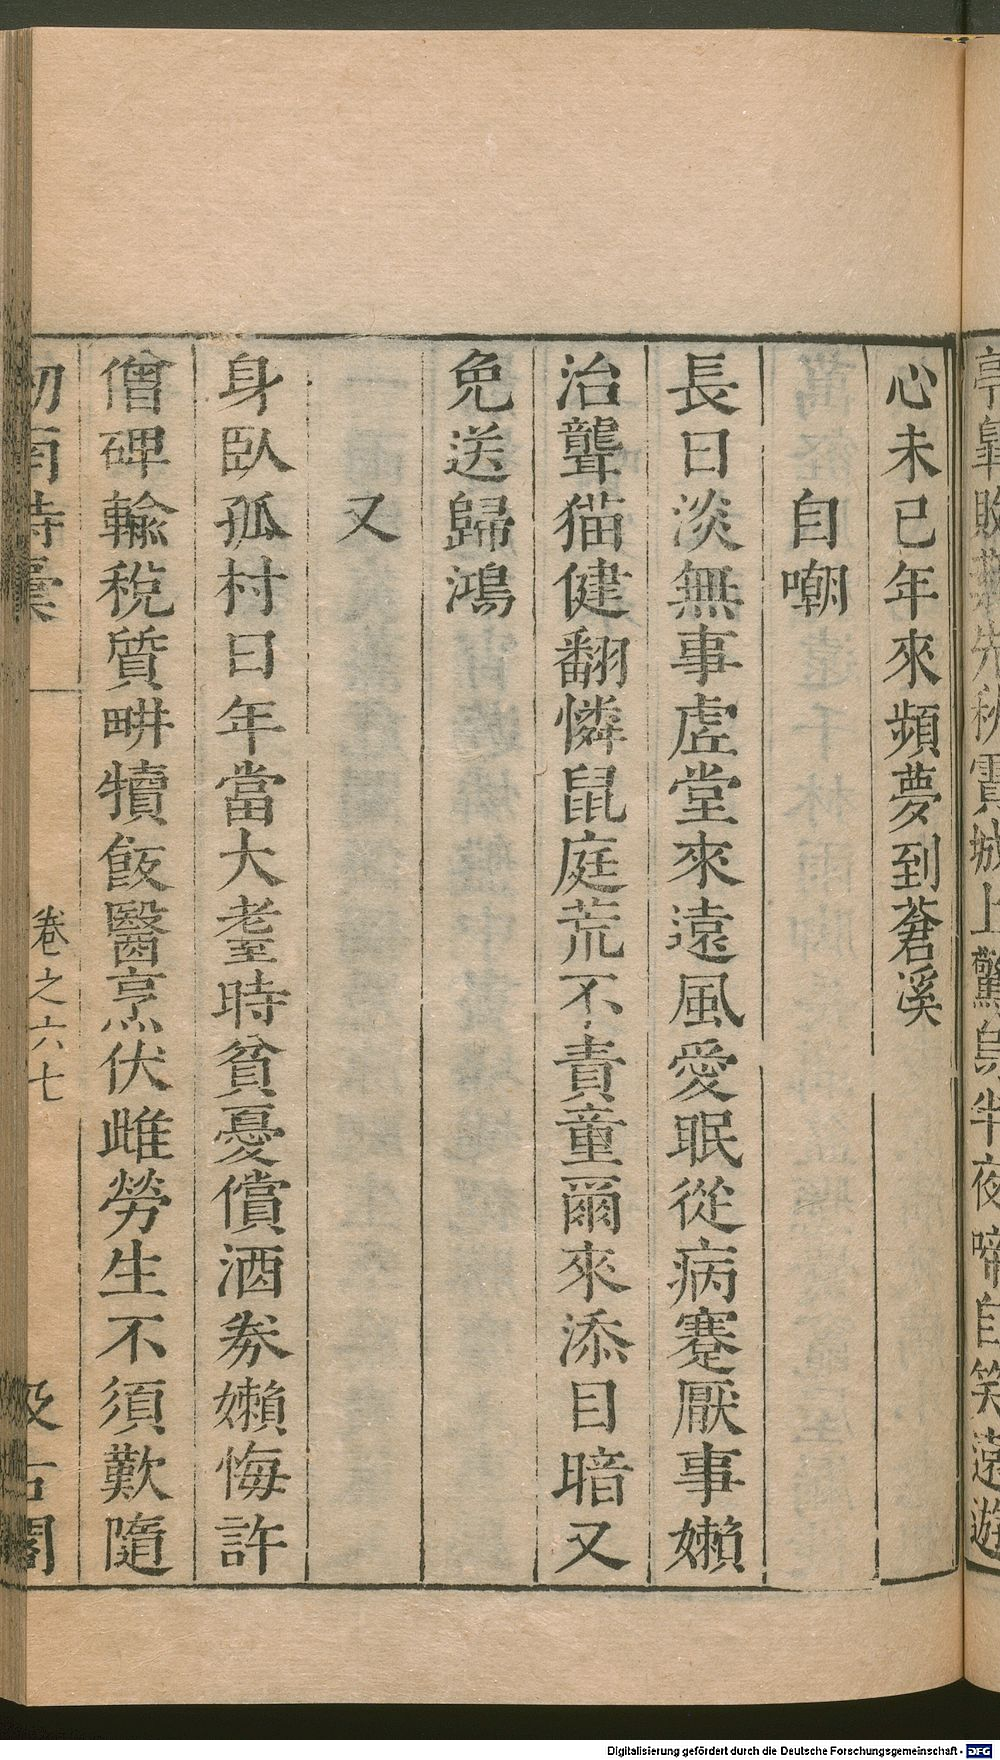 亭皐敗葉先秋霣城上驚烏半夜啼自笑遠遊
心未已年來頻夢到蒼溪
自嘲
長日淡無事虛堂來遠風愛眠從病蹇厭事嬾
治聾猫健翻憐鼠庭荒不責童爾來添目暗又
免送歸鴻
又
身臥孤村日年當大耋時貧憂償酒券嬾悔許
僧碑輸稅質畊犢飯醫烹伏雌勞生不須歎隨
劒南詩稾 卷之六七 汲古閣
Digitalisierung gefördert durch die Deutsche Forschungsgemeinschaft - DFG